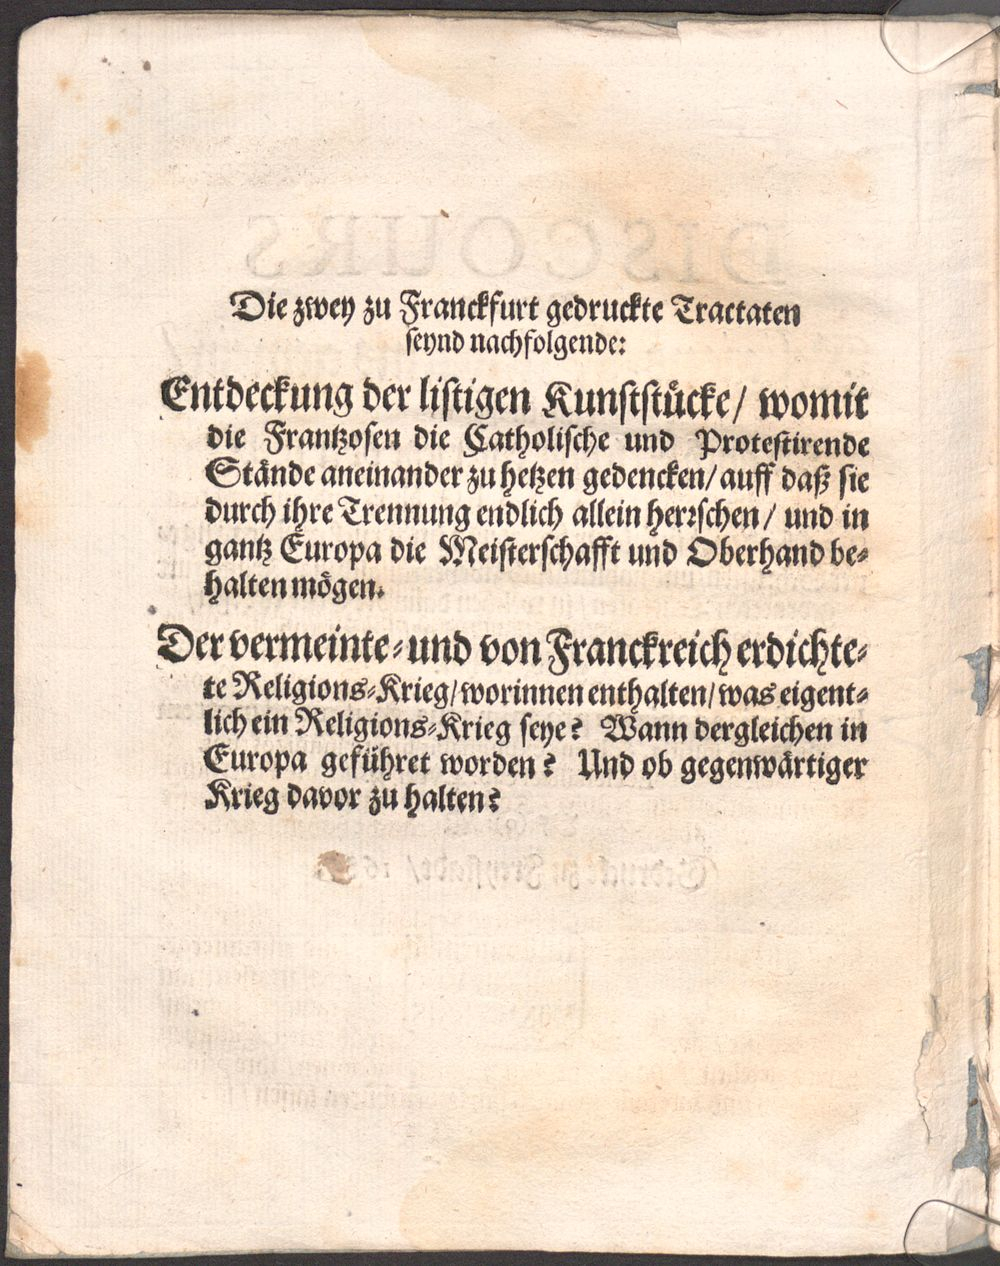 Die zwey zu Franckfurt gedruckte Tractaten
seynd nachfolgende:
Entdeckung der listigen Kunststücke/ womit
die Frantzosen die Catholische und Protestirende
Stände aneinander zu hetzen gedencken/ auff daß sie
durch ihre Trennung endlich allein herrschen/ und in
gantz Europa die Meisterschafft und Oberhand be-
halten mögen.
Der vermeinte- und von Franckreich erdichte-
te Religions-Krieg/ worinnen enthalten/ was eigent-
lich ein Religions-Krieg seye? Wann dergleichen in
Europa geführet worden? Und ob gegenwärtiger
Krieg davor zu halten?